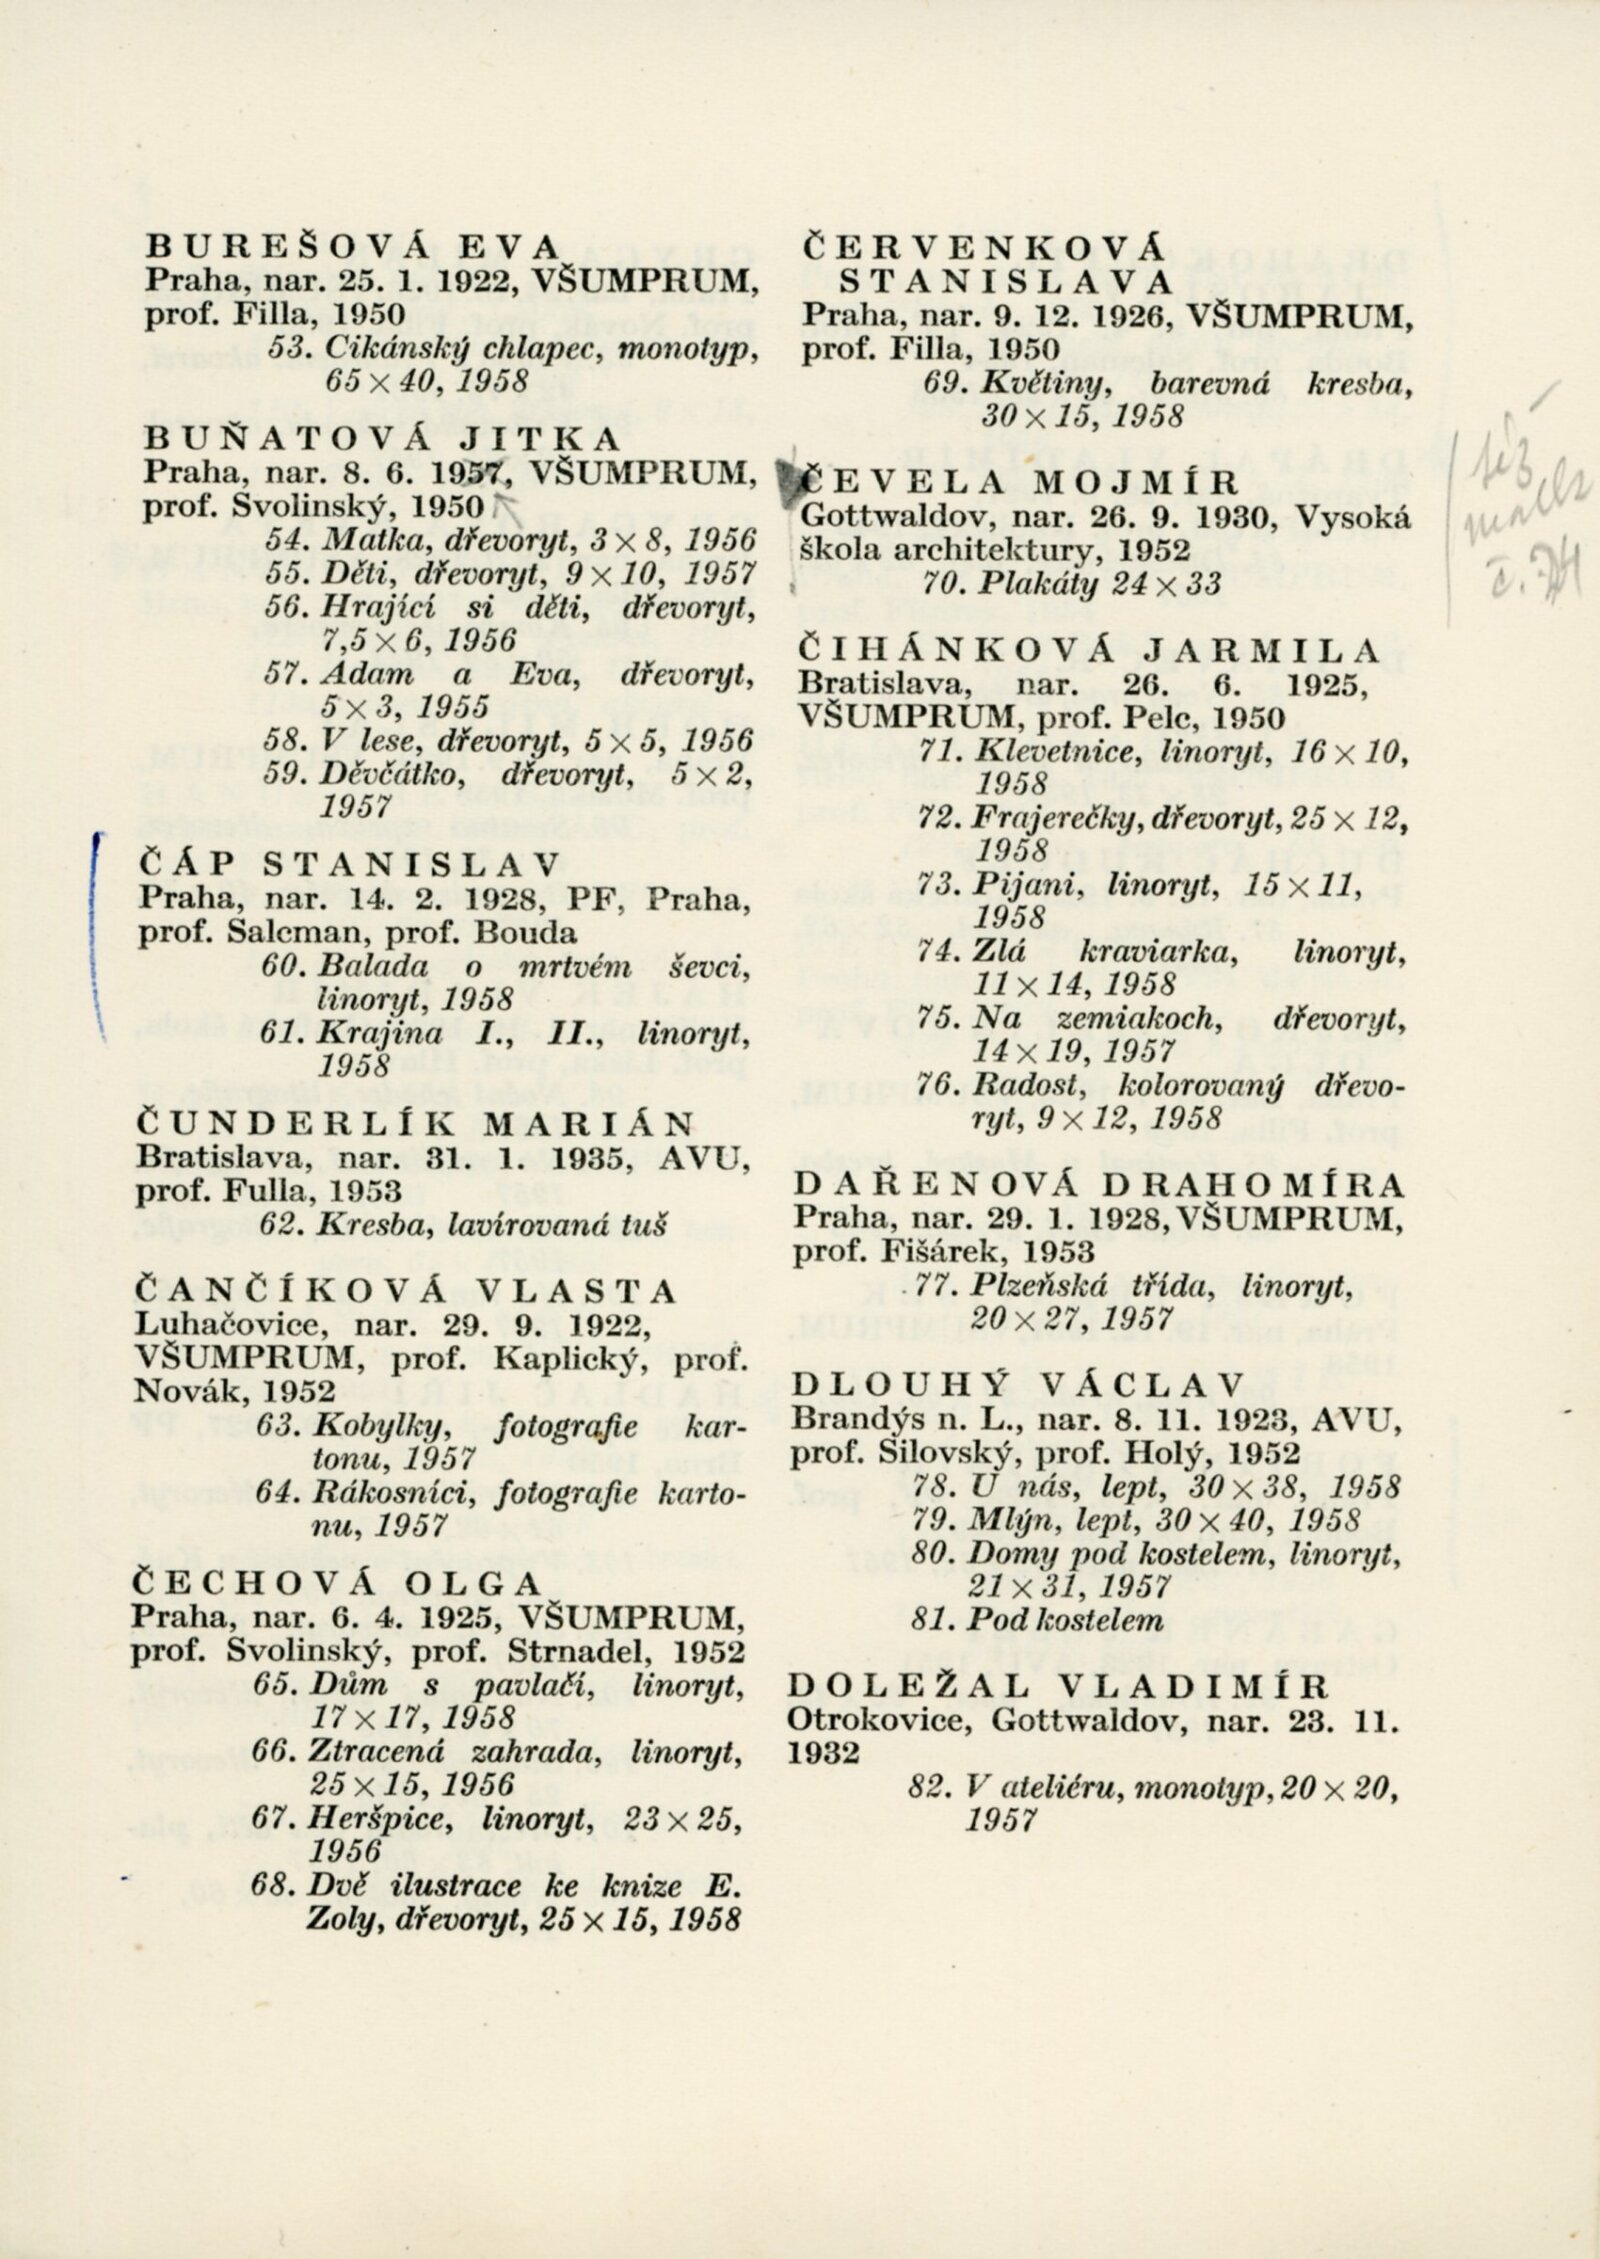 BUREŠOVÁ EVA
Praha, nar. 25. 1. 1922, VŠUMPRUM,
prof. Filla, 1950
53. Cikánský chlapec, monotyp,
65 × 40, 1958
BUŇATOVÁ JITKA
Praha, nar. 8. 6. 1957, VŠUMPRUM,
prof. Svolinský, 1950
54. Matka, dřevoryt, 3 × 8, 1956
55. Děti, dřevoryt, 9 × 10, 1957
56. Hrající si děti, dřevoryt,
7,5 × 6, 1956
57. Adam a Eva, dřevoryt,
5 × 3, 1955
58. V lese, dřevoryt, 5 × 5, 1956
59. Děvčátko, dřevoryt, 5 × 2,
1957
ČÁP STANISLAV
Praha, nar. 14. 2. 1928, PF, Praha,
prof. Salcman, prof. Bouda
60. Balada o mrtvém ševci,
linoryt, 1958
61. Krajina I., II., linoryt,
1958
ČUNDERLÍK MARIÁN
Bratislava, nar. 31. 1. 1935, AVU,
prof. Fulla, 1953
62. Kresba, lavírovaná tuš
ČANČÍKOVÁ VLASTA
Luhačovice, nar. 29. 9. 1922,
VŠUMPRUM, prof. Kaplický, prof.
Novák, 1952
63. Kobylky, fotografie kar-
tonu, 1957
64. Rákosníci, fotografie karto-
nu, 1957
ČECHOVÁ OLGA
Praha, nar. 6. 4. 1925, VŠUMPRUM,
prof. Svolinský, prof. Strnadel, 1952
65. Dům s pavlačí, linoryt,
17 × 17, 1958
66. Ztracená zahrada, linoryt,
25 × 15, 1956
67. Heršpice, linoryt, 23 × 25,
1956
68. Dvě ilustrace ke knize E.
Zoly, dřevoryt, 25 × 15, 1958
ČERVENKOVÁ
STANISLAVA
Praha, nar. 9. 12. 1926, VŠUMPRUM,
prof. Filla, 1950
69. Květiny, barevná kresba,
30 × 15, 1958
ČEVELA MOJMÍR
Gottwaldov, nar. 26. 9. 1930, Vysoká
škola architektury, 1952
70. Plakáty 24 × 33
ČIHÁNKOVÁ JARMILA
Bratislava, nar. 26. 6. 1925,
VŠUMPRUM, prof. Pelc, 1950
71. Klevetnice, linoryt, 16 × 10,
1958
72. Frajerečky, dřevoryt, 25 × 12,
1958
73. Pijani, linoryt, 15 × 11,
1958
74. Zlá kraviarka, linoryt,
11 × 14, 1958
75. Na zemiakoch, dřevoryt,
14 × 19, 1957
76. Radost, kolorovaný dřevo-
ryt, 9 × 12, 1958
DAŘENOVÁ DRAHOMÍRA
Praha, nar. 29. 1. 1928, VŠUMPRUM,
prof. Fišárek, 1953
77. Plzeňská třída, linoryt,
20 × 27, 1957
DLOUHÝ VÁCLAV
Brandýs n. L., nar. 8. 11. 1923, AVU,
prof. Silovský, prof. Holý, 1952
78. U nás, lept, 30 × 38, 1958
79. Mlýn, lept, 30 × 40, 1958
80. Domy pod kostelem, linoryt,
21 × 31, 1957
81. Pod kostelem
DOLEŽAL VLADIMÍR
Otrokovice, Gottwaldov, nar. 23. 11.
1932
82. V ateliéru, monotyp, 20 × 20,
1957